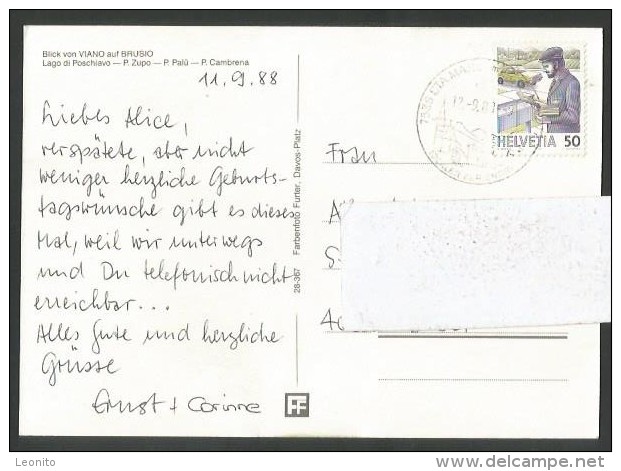 Blick von VIANO auf BRUSIO
Lago di Poschiavo — P. Zupo — P. Palü — P. Cambrena
11.9.88
Liebes Alice,
verspätete, aber nicht
weniger herzliche Geburts-
tagswünsche gibt es dieses
Mal, weil wir unterwegs
und Du telefonisch nicht
erreichbar...
Alles Gute und herzliche
Grüsse
Ernst + Corinne
28-367 Farbenfoto Furter, Davos-Platz
FF
HELVETIA 50
Frau
Leonito
delcampe.net